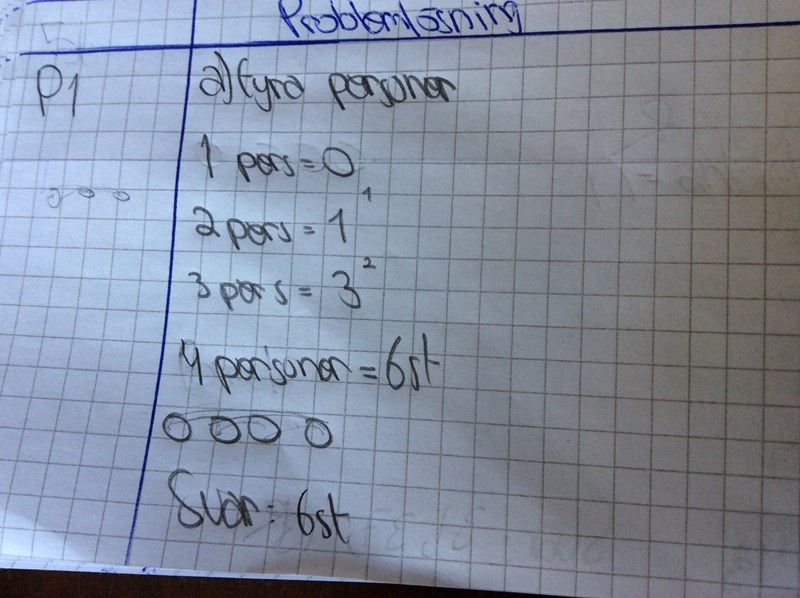 Problemlösning
P1
a) fyra personer
1 pers = 0
1
2 pers = 1
2
3 pers = 3
4 personer = 6st
Svar: 6st